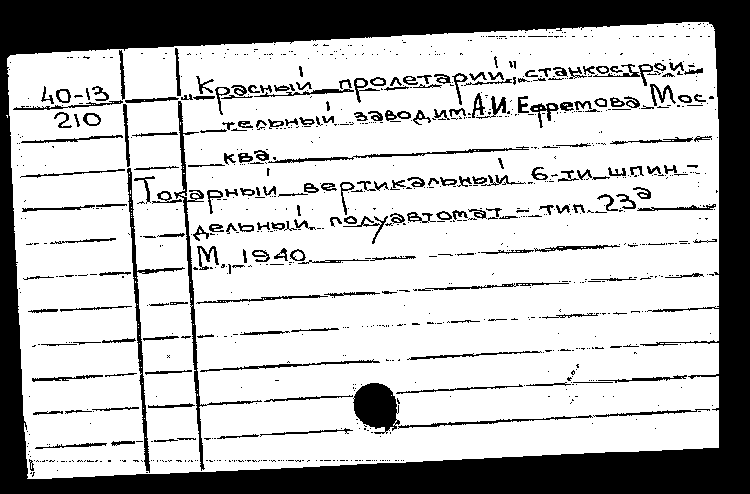 40-13
210
„Красный пролетарий", станкострои-
тельный завод им. А.И. Ефремова Мос-
ква.
Токарный вертикальный 6-ти шпин-
дельный полуавтомат - тип 23а
М., 1940